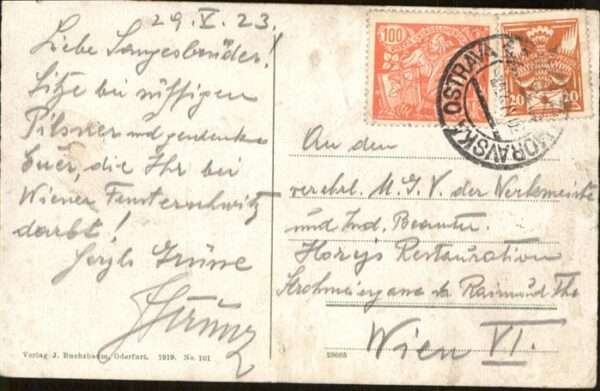 29.V.23.
Liebe Sangesbrüder!
Sitze bei süffigen
Pilsner und gedenke
Euer, die Ihr bei
Wiener Fensterschwitz
darbt!
Herzl. Grüße
100
20 20
MORAVSKÁ OSTRAVA
An den
verehrl. M.G.V. der Werkmeister
und Ind. Beamten
Restauration
Wien VI.
Verlag J. Buchsbaum, Oderfurt. 1919. No. 101